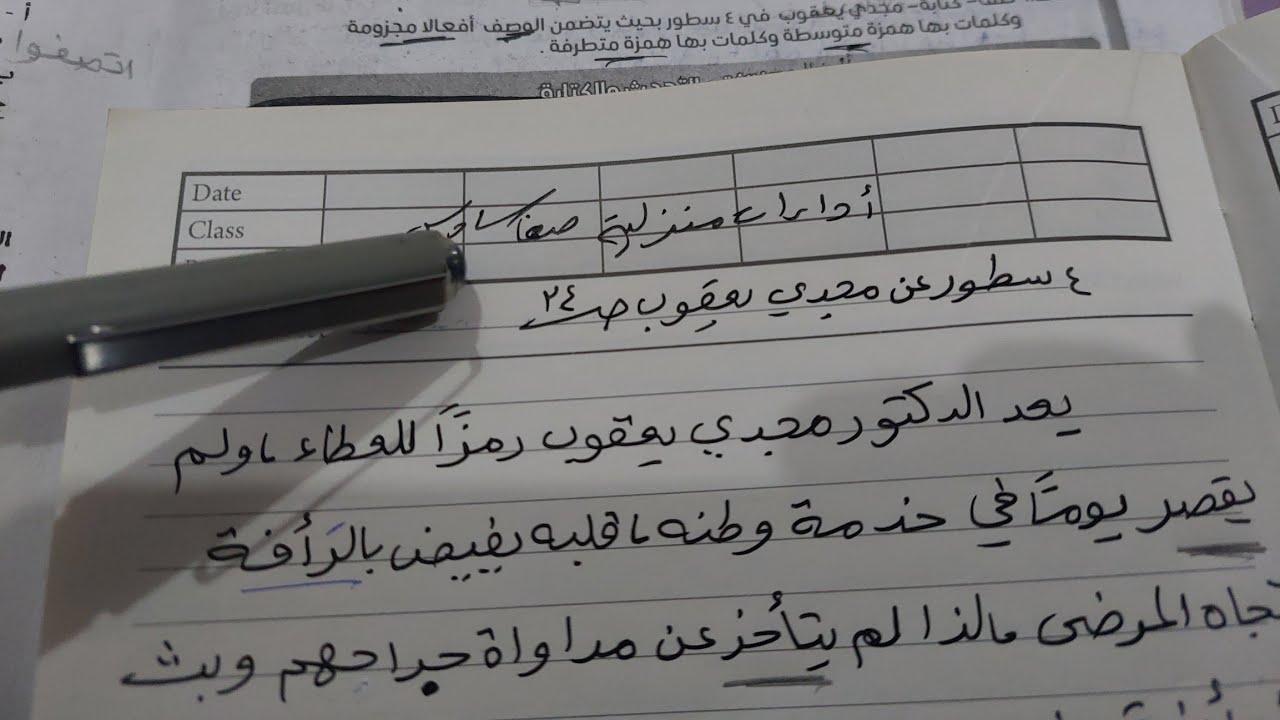 كتابة- مجدي يعقوب في ٤ سطور بحيث يتضمن الوصف أفعالا مجزومة
وكلمات بها همزة متوسطة وكلمات بها همزة متطرفة .
اتصفوا
Date
Class
أداءات منزلية
٤ سطور عن مجدي يعقوب صـ ٢٤
يعد الدكتور مجدي يعقوب رمزًا للعطاء ، ولم
يقصر يومًا في خدمة وطنه ، قلبه يفيض بالرَأفة
تجاه المرضى ، لذا لم يتأخر عن مداواة جراحهم وبث